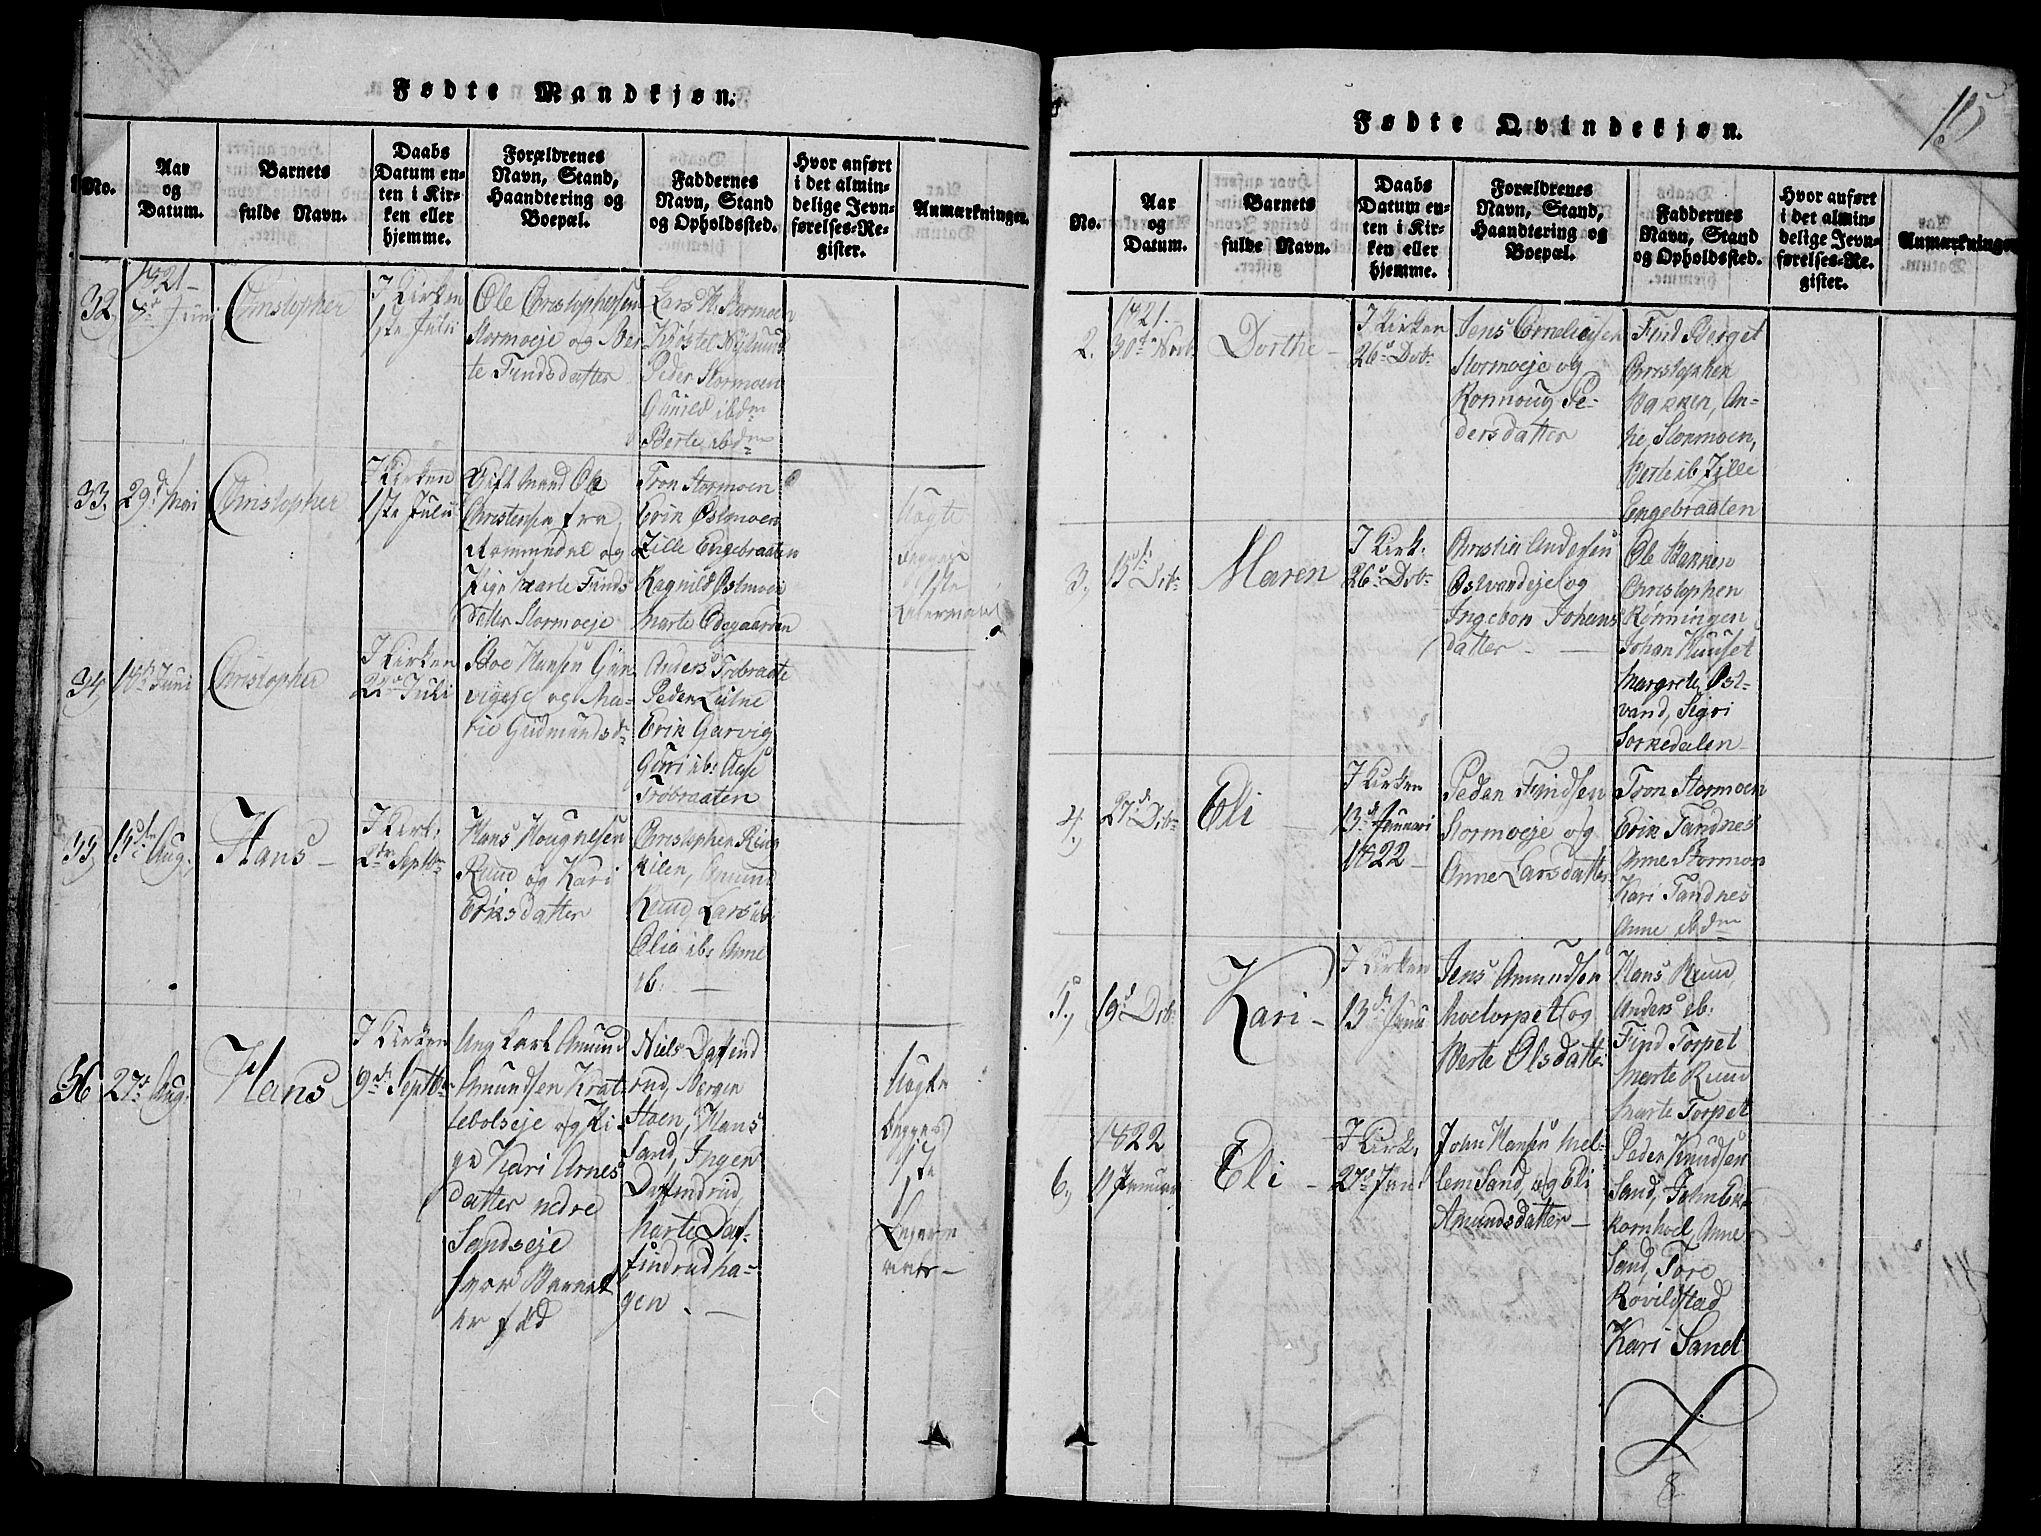 Fødte Mandkjøn.
No.
Aar
og
Datum.
Barnets
fulde Navn.
Daabs
Datum en-
ten i Kir-
ken eller
hjemme.
Forældrenes
Navn, Stand,
Haandtering og
Boepæl.
Faddernes
Navn, Stand
og Opholdssted.
Hvor anført
i det almin-
delige Jevn-
førelses-Re-
gister.
Anmærkninger.
32.
1821-
8de Juni
Christopher
I Kirken
1ste Julii
Ole Christophersen
Stormoeje og Ber
te Findsdatter
Lars H. Stormoen
Peder Stormoen
Gunild ibdm
Berte ibdm
33.
29d Mai
Christopher
I Kirken
1ste Julii
Gift Mand Ole
Christensen fra
Rommedal og
Pige Marte Finds
datter Stormoeje
Tron Stormoen
Erik Østmoen
Zille Engebraaten
Ragnild Østmoen
Marte Odegaarden
Uægte
Begges
1ste
Leiermaal
34,
15de Juni
Christopher
I Kirken
22de Juli
Boe Hansen Gar
vigeje og Ma-
rie Gudmundsdr
Anders Trøbraate
Peder Lulne
Erik Garvig
Guri ib: Aase
Trøbraaten
35,
15de Aug.
Hans -
I Kirk.
2den Septbr
Hans Haugnesen
Ruud og Kari
Eriksdatter
Christopher Ring
kilen, Amund
Ruud, Lars ib:
Olia ib: Anne
ib. -
36
27de Aug.
Hans
I Kirken
9de Septbr
Ung Karl Amund
Amundsen Krat
tebolseje og Pi-
ge Kari Arnes
datter nedre
Sandseje
hvor Barnet
er fød
Niels Daffind
rud, Bergen
Moen, Hans
Sand, Ingen
Daffindrud,
Marte Daf-
findrudha-
gen. -
Uægte
Begges
1ste
Leierm
Fødte Qvindekjøn.
15
No.
Aar
og
Datum.
Barnets
fulde Navn.
Daabs
Datum en-
ten i Kir-
ken eller
hjemme.
Forældrenes
Navn, Stand,
Haandtering og
Boepæl.
Faddernes
Navn, Stand
og Opholdssted.
Hvor anført
i det almin-
delige Jevn-
førelses-Re-
gister.
Anmærkninger
2.
1821.
30te Novb.
Dorthe -
I Kirken
26de Dcbr
Jens Corneliesen
Stormoeje og
Ronnoug Pe-
dersdatter
Find Berget
Christopher
Bakken, An-
ne Stormoen,
Berte ib Zille
Engebraaten
3.
15de Dcbr
Maren
I Kirk.
26de Dcbr
Christian Andersen
Østvandeje og
Ingebor Johans
datter -
Ole Bakken
Christopher
Rønningen
Johan Huuset
Margrete Øst-
vand, Sigri
Sorkedalen
4.,
27de Dcbr
Eli
I Kirken
13de Januari
1822 -
Peder Findsen
Stormoeje og
Anne Larsdatter
Tron Stormoen
Erik Sandnes
Anne Stormoen
Kari Sandnes
Anne ibdm
5.,
19de Dcbr
Kari -
I Kirken
13de Janu
Jens Amundsen
Moetorpet og
Berte Olsdatter
Hans Ruud,
Anders ib:
Find Torpet
Marte Ruud
Marte Torpet
6.,
1822
11 Januar
Eli -
I Kirk.
27de Jan.
John Hansen Mel-
lem Sand, og Eli
Amundsdatter -
Peder Knudsen
Sand, John Ek
kornhoel, Anne
Sand, Tore
Røvildstad
Kari Sand
8